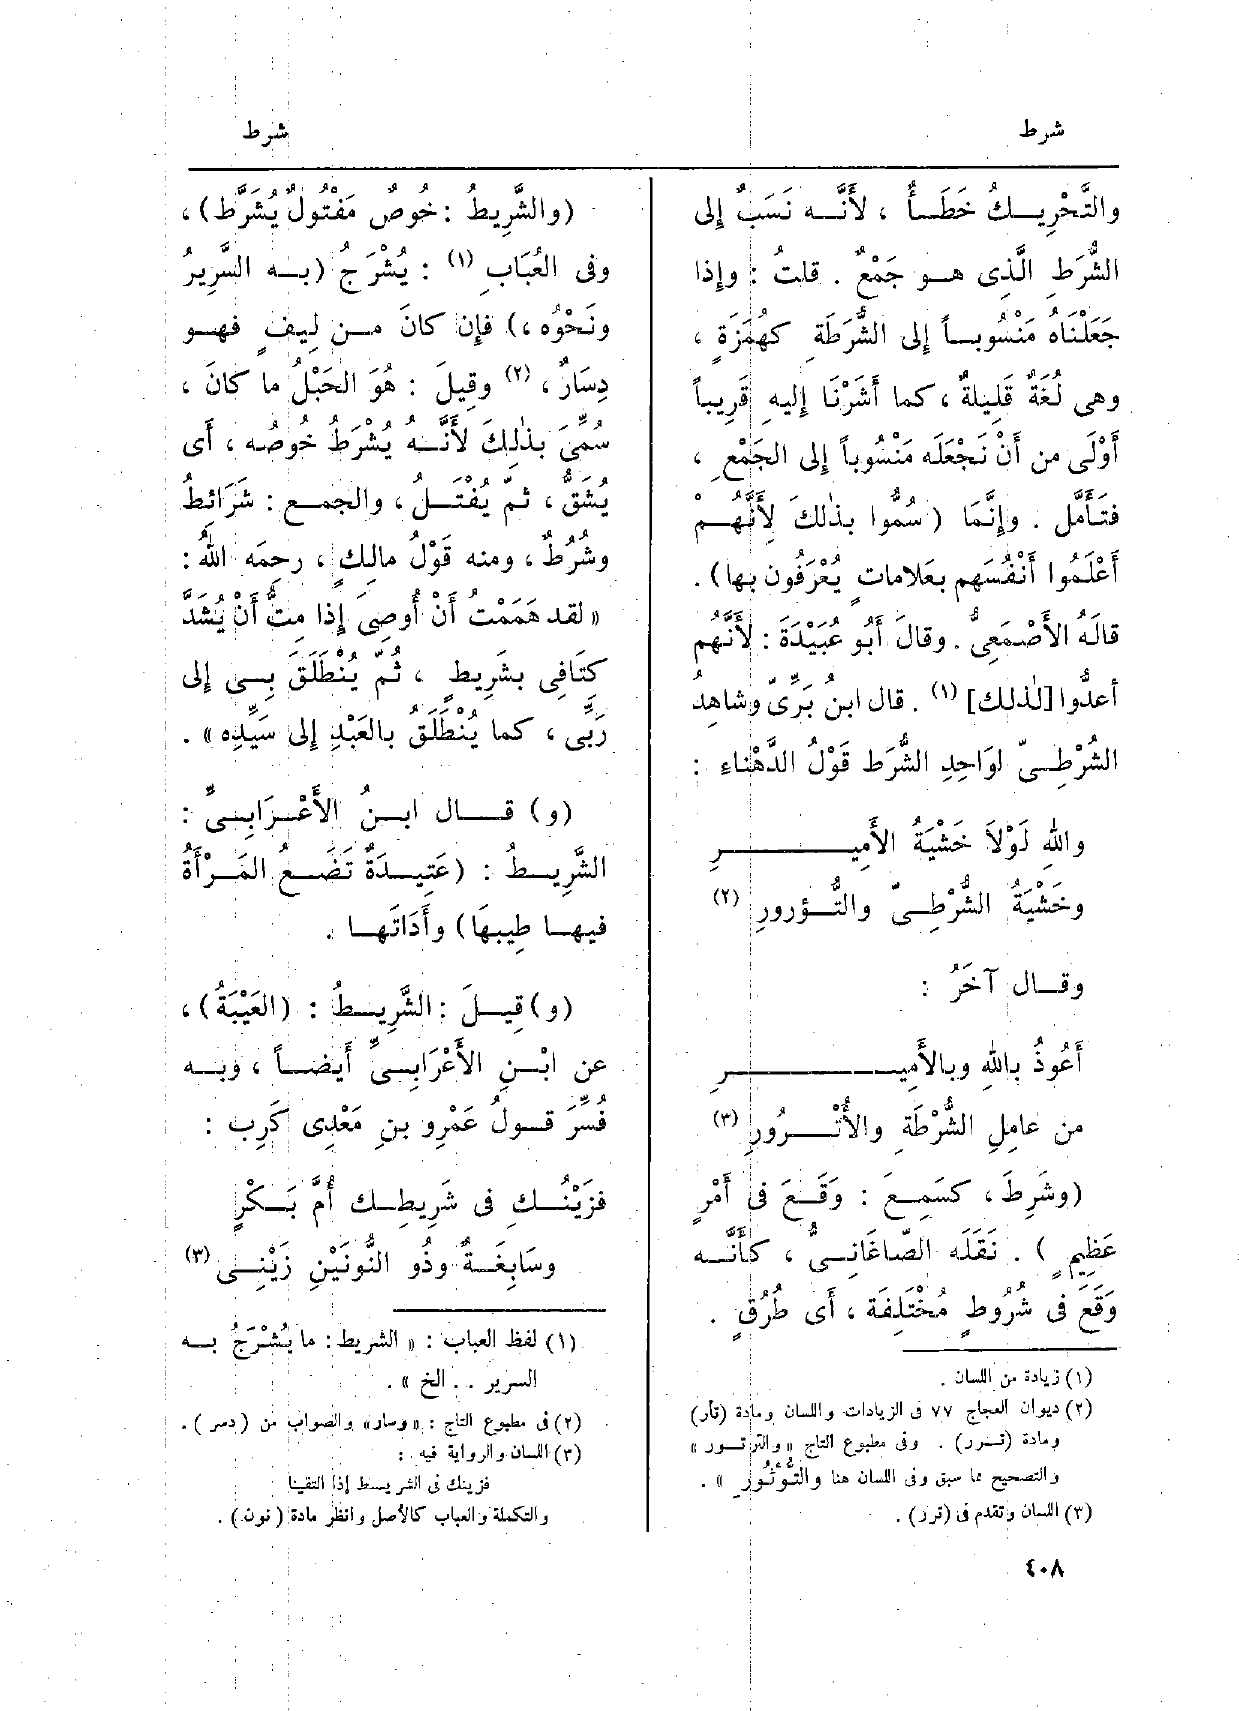 شرط
شرط
والتَّحْرِيكُ خَطَأٌ ، لأَنَّه نَسَبٌ إلى
الشُّرَطِ الَّذِى هو جَمْعٌ . قلتُ : وإذا
جَعَلْنَاهُ مَنْسُوباً إلى الشُّرَطَةِ كهُمَزَةٍ ،
وهى لُغَةٌ قَلِيلَةٌ ، كما أَشَرْنَا إليهِ قَرِيباً
أَوْلَى من أَنْ نَجْعَلَه مَنْسُوباً إلى الجَمْعِ ،
فتَأَمَّل . وإِنَّمَا (سُمُّوا بذٰلكَ لِأَنَّهُمْ
أَعْلَمُوا أَنْفُسَهم بعَلاماتٍ يُعْرَفُون بها) .
قالَهُ الأَصْمَعِىُّ . وقالَ أَبُو عُبَيْدَةَ : لأَنَّهُم
أعدُّوا [لذٰلك] (١) . قال ابنُ بَرِّىّ وشاهِدُ
الشُّرْطِىّ لوَاحِدِ الشُّرَط قَوْلُ الدَّهْناءِ :
والله لَوْلاَ خَشْيَةُ الأَمِيرِ
وخَشْيَةُ الشُّرْطِىّ والتُّؤرورِ (٢)
وقال آخَرُ :
أَعُوذُ بالله وبالأَمِيرِ
من عامِلِ الشُّرْطَةِ والأُتْرُورِ (٣)
(وشَرِطَ ، كسَمِعَ : وَقَعَ فى أَمْرٍ
عَظِيمٍ ) . نَقَلَه الصّاغَانِىُّ ، كأَنَّه
وَقَعَ فى شُرُوطٍ مُخْتَلِفَة ، أَى طُرُقٍ .
(١) زيادة من اللسان .
(٢) ديوان العجاج ٧٧ فى الزيادات واللسان ومادة (تأر)
ومادة (ترر) . وفى مطبوع التاج « والترتور »
والتصحيح مما سبق وفى اللسان هنا والتُّؤثُورِ » .
(٣) اللسان وتقدم فى (ترر) .
(والشَّرِيطُ : خُوصٌ مَفْتُولٌ يُشَرَّط) ،
وفى العُبَابِ (١) : يُشْرَجُ (به السَّرِيرُ
ونَحْوُه ،) فإن كانَ من لِيفٍ فهو
دِسَارٌ ، (٢) وقِيلَ : هُوَ الحَبْلُ ما كانَ ،
سُمِّىَ بذٰلِكَ لأَنَّه يُشْرَطُ خُوصُه ، أَى
يُشَقُّ ، ثمّ يُفْتَلُ ، والجمع : شَرَائطُ
وشُرُطٌ ، ومنه قَوْلُ مالِكٍ ، رحِمَه اللهُ :
« لقد هَمَمْتُ أَنْ أُوصِىَ إِذا مِتُّ أَنْ يُشَدَّ
كِتَافِى بشَرِيطٍ ، ثُمّ يُنْطَلَقَ بِى إلى
رَبِّى ، كما يُنْطَلَقُ بالعَبْدِ إلى سَيِّدِه » .
(و) قال ابنُ الأَعْرَابِىُّ :
الشَّرِيطُ : (عَتِيدَةٌ تَضَعُ المَرْأَةُ
فيها طِيبهَا) وأَدَاتَها .
(و) قِيلَ : الشَّرِيطُ : (العَيْبَةُ) ،
عن ابْنِ الأَعْرَابِىِّ أَيضاً ، وبه
فُسِّرَ قولُ عَمْرِو بنِ مَعْدِى كَرِب :
فزَيْنُكِ فى شَرِيطِك أُمَّ بَكْرٍ
وسَابِغَةٌ وذُو النُّونَيْنِ زَيْنِى (٣)
(١) لفظ العباب : « الشريط : ما يُشْرَجُ به
السرير .. الخ » .
(٢) فى مطبوع التاج : « وسار» والصواب من ( دسر ) .
(٣) اللسان والرواية فيه . :
فزينك فى الشريط إذا التقينا
والتكملة والعباب كالأصل وانظر مادة ( نون ) .
٤٠٨